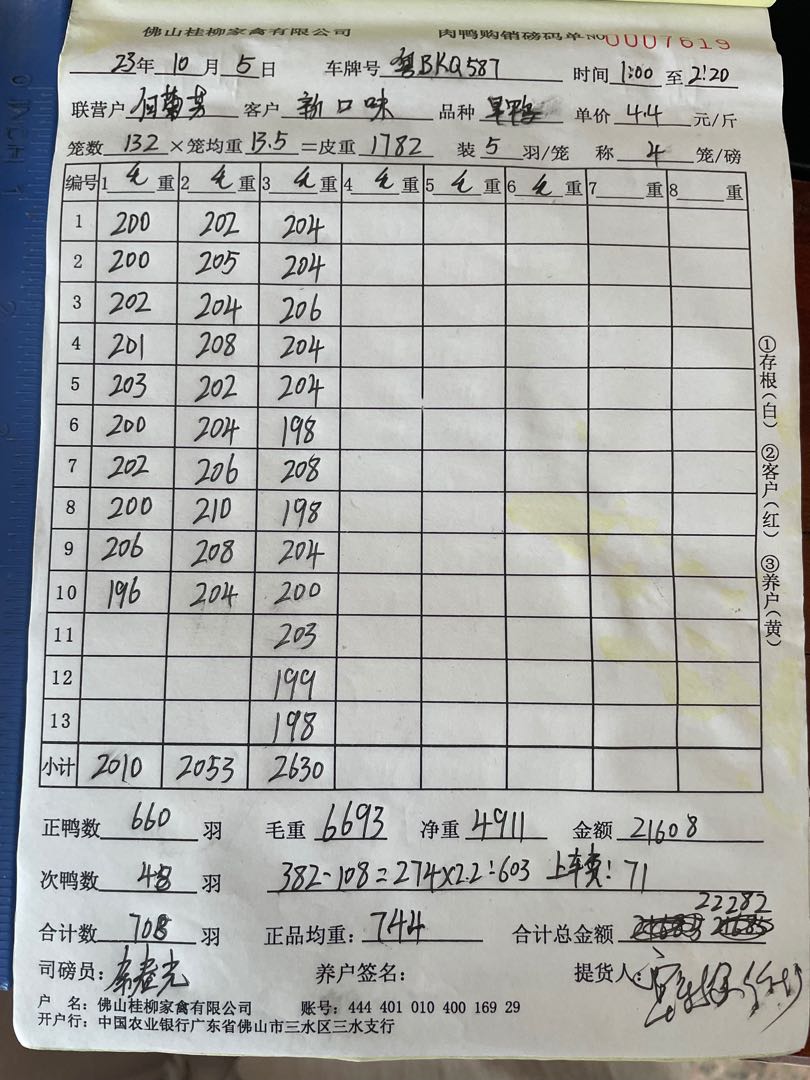 佛山桂柳家禽有限公司 肉鸭购销磅码单 NO 0007619
23年 10月 5日 车牌号 粤BKQ587 时间 1:00 至 2:20
联营户 何菊芳 客户 新口味 品种 单价 4.4 元/斤
笼数 132 ×笼均重 13.5 =皮重 1782 装 5 羽/笼 称 4 笼/磅
编号 1 毛 重 2 毛 重 3 毛 重 4 毛 重 5 毛 重 6 毛 重 7 重 8 重
1 200 202 204
2 200 205 204
3 202 204 206
4 201 208 204
5 203 202 204
6 200 204 198
7 202 206 208
8 200 210 198
9 206 208 204
10 196 204 200
11 203
12 199
13 198
小计 2010 2053 2630
①存根(白) ②客户(红) ③养户(黄)
正鸭数 660 羽 毛重 6693 净重 4911 金额 21608
次鸭数 48 羽 382-108=274×2.2=603 上车费: 71
22282
合计数 708 羽 正品均重: 744 合计总金额
司磅员: 养户签名: 提货人:
户 名: 佛山桂柳家禽有限公司 账号: 444 401 010 400 169 29
开户行: 中国农业银行广东省佛山市三水区三水支行